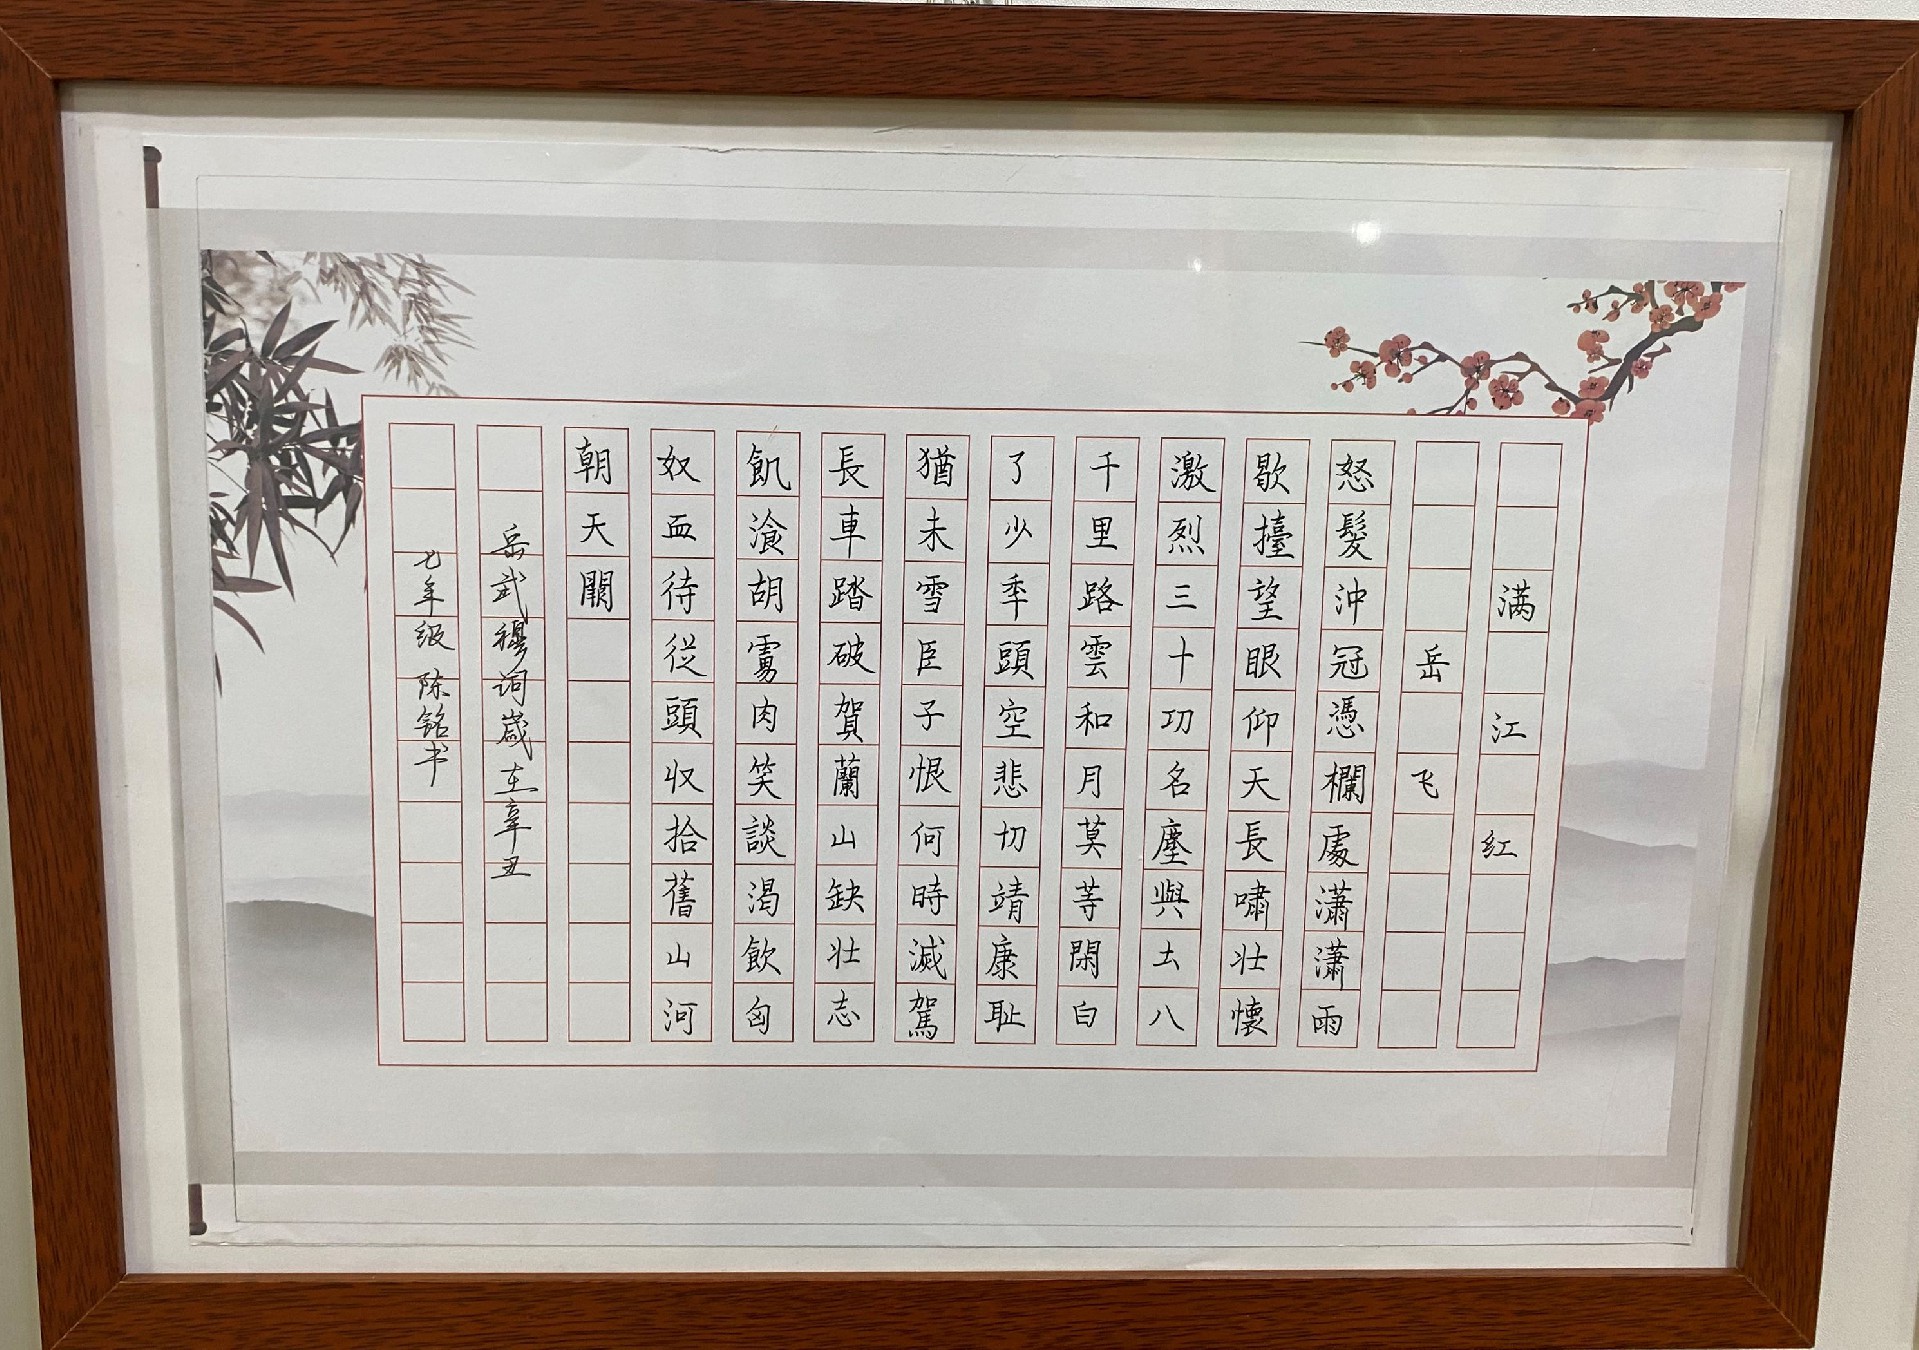 满江红
岳飞
怒髮沖冠憑欄處潇潇雨
歇擡望眼仰天長嘯壮懷
激烈三十功名塵與土八
千里路雲和月莫等閑白
了少年頭空悲切靖康耻
猶未雪臣子恨何時滅駕
長車踏破賀蘭山缺壮志
飢湌胡虜肉笑談渴飲匈
奴血待從頭收拾舊山河
朝天闕
岳武穆词歲在辛丑
七年级陈铭书